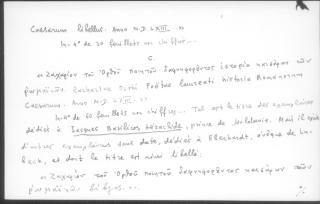 Caesarum libellus. Anno M.D.LXIII. »
In-4° de 20 feuillets non chiffrés.
C.
« Ζαχαρίου τοῦ Ὄρθου ποιητοῦ ἱστορία καισάρων τῶν
ῥωμαϊκῶν. Zachariae Orthi Poëtae laureati historia Romanorum
Caesarum. Anno M.D.
In-4° de 60 feuillets non chiffrés. Tel est le titre des exemplaires
dédiés à Jacques Basilicos Héraclide, prince de Moldavie. Mais il existe
d'autres exemplaires sans date, dédiés à Eberhardt, évêque de Lu-
beck, et dont le titre est ainsi libellé:
« Ζαχαρίου τοῦ Ὄρθου ποιητοῦ καισάρων τῶν
ῥωμαϊκῶν βίβλος. »